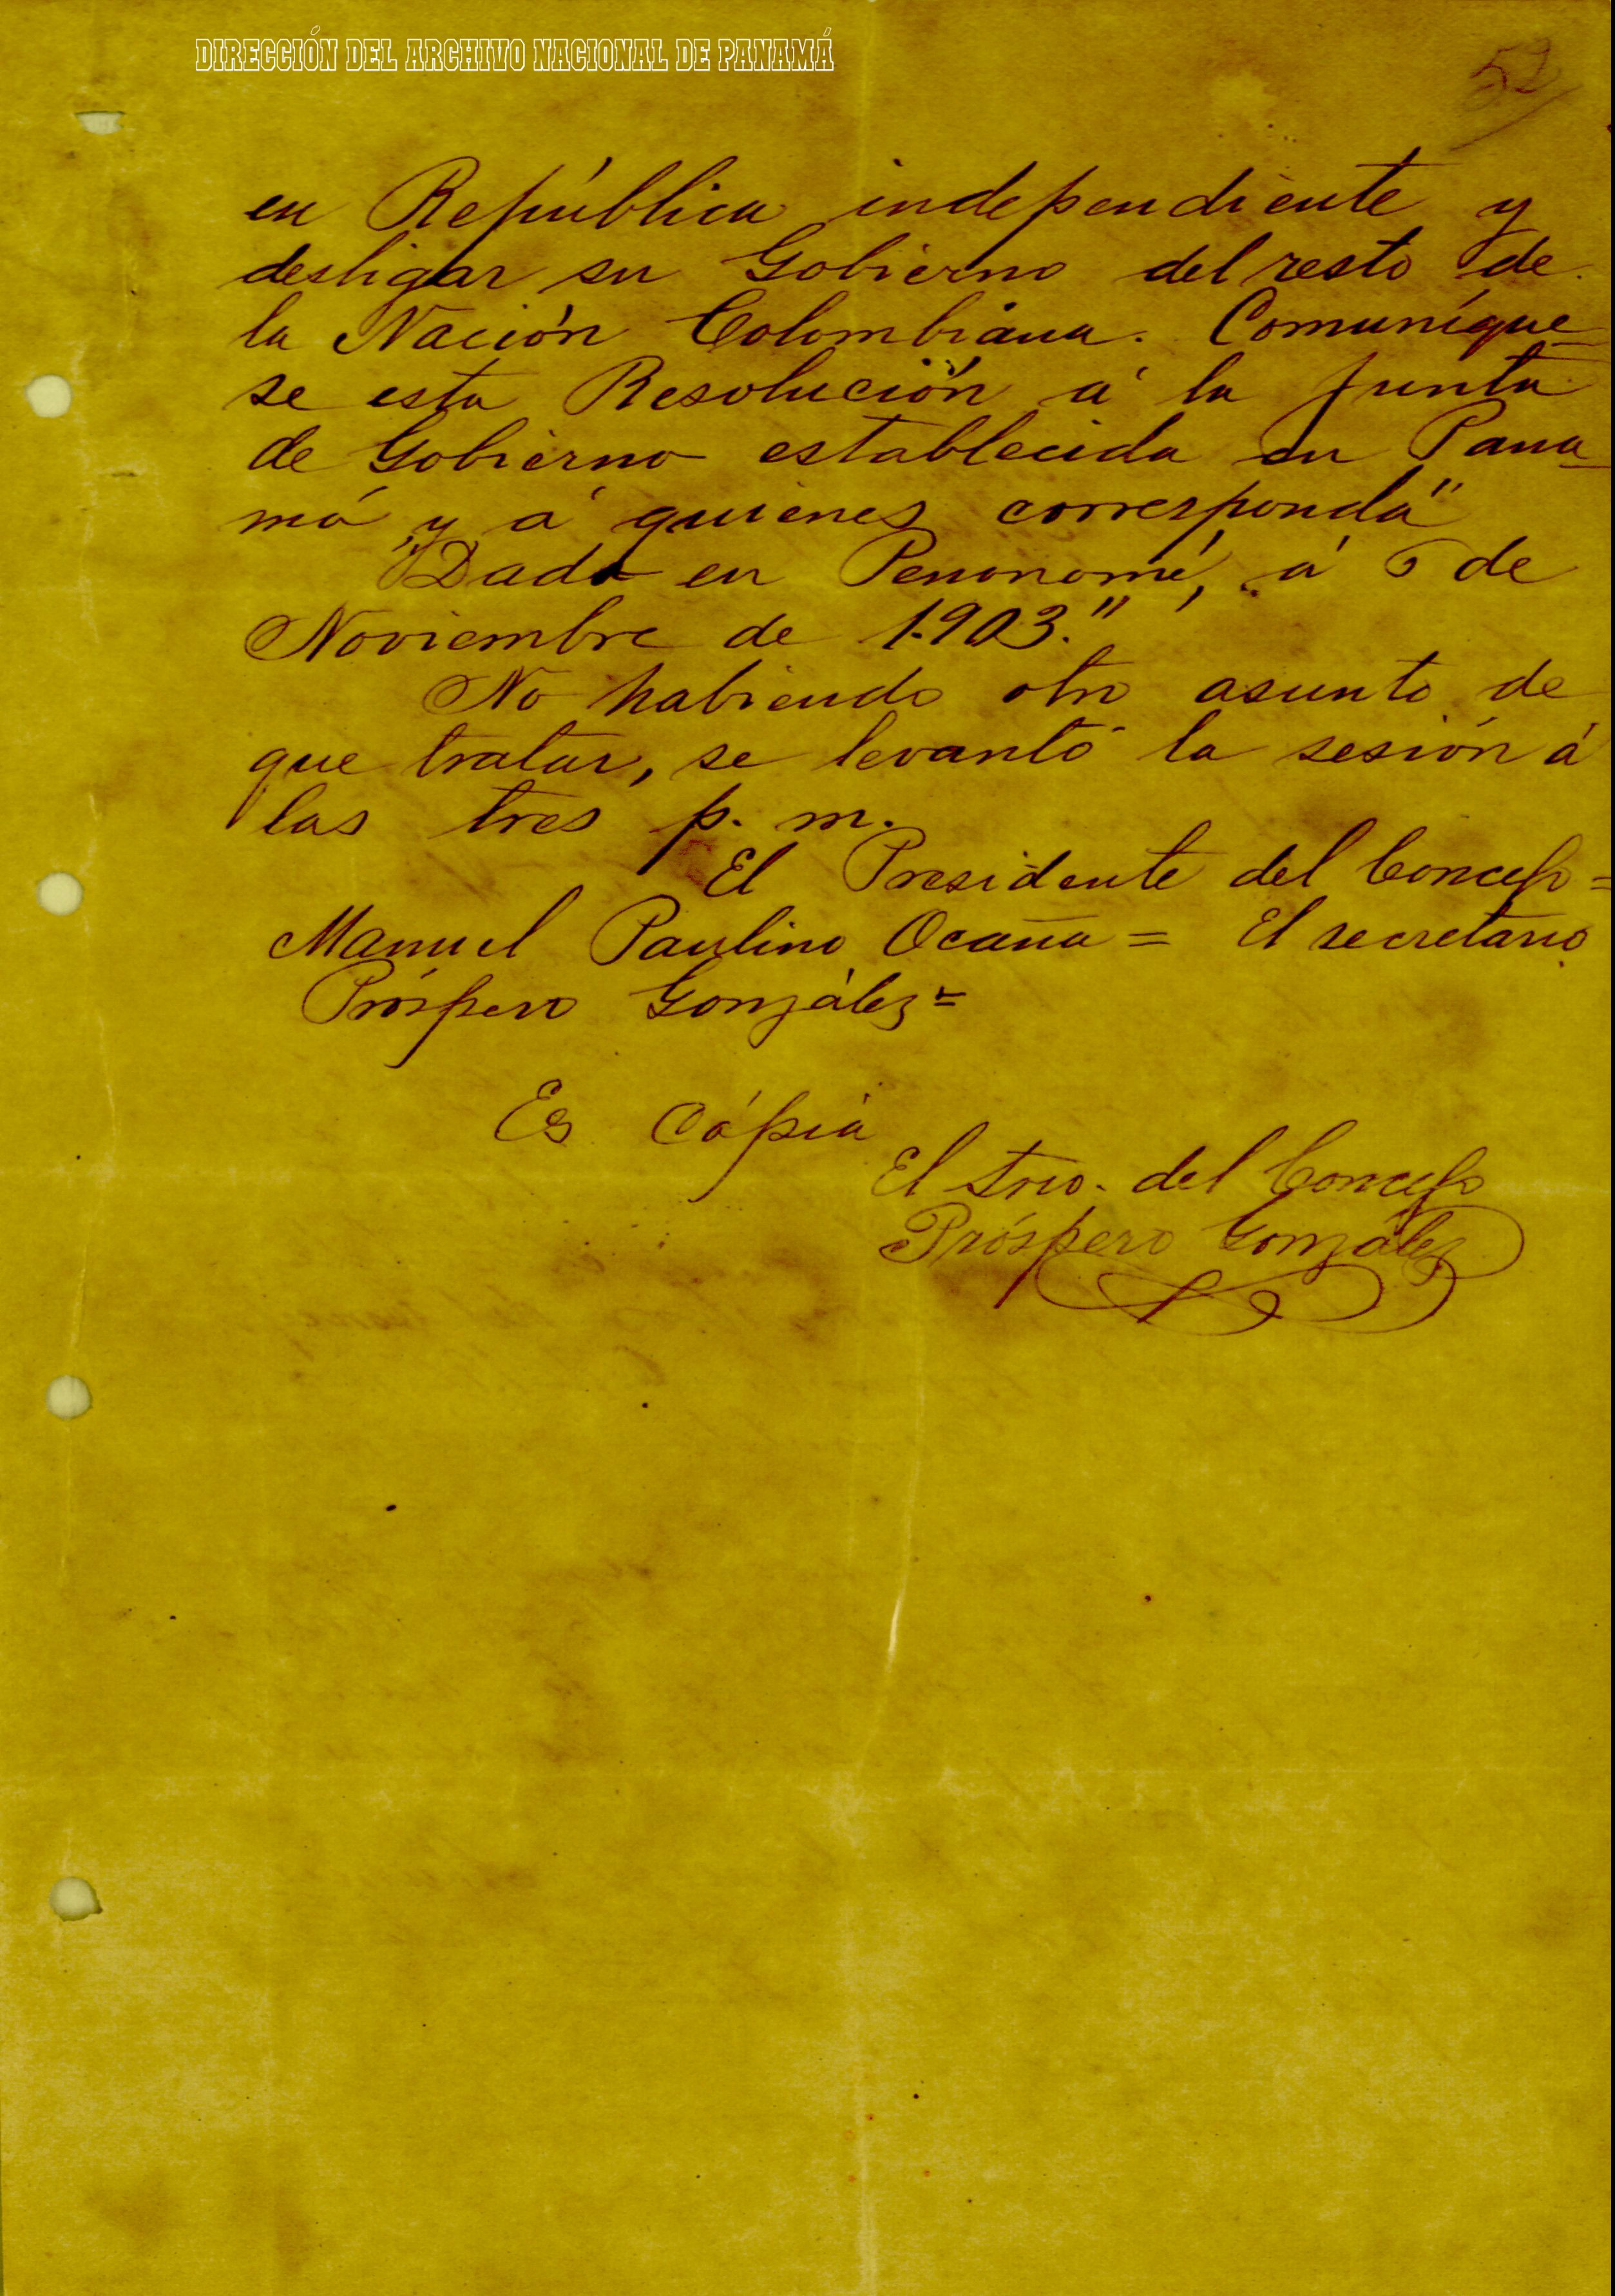 DIRECCIÓN DEL ARCHIVO NACIONAL DE PANAMÁ
52
en República independiente y
desligar su Gobierno del resto de
la Nación Colombiana. Comuníque-
se esta Resolución á la Junta
de Gobierno establecida en Pana-
má, y á quienes corresponda"
"Dada en Penonomé, á 6 de
Noviembre de 1.903."
No habiendo otro asunto de
que tratar, se levantó la sesión á
las tres p. m.
El Presidente del Concejo =
Manuel Paulino Ocaña = El secretario
Próspero González =
Es Cópia
El Srio. del Concejo
Próspero González